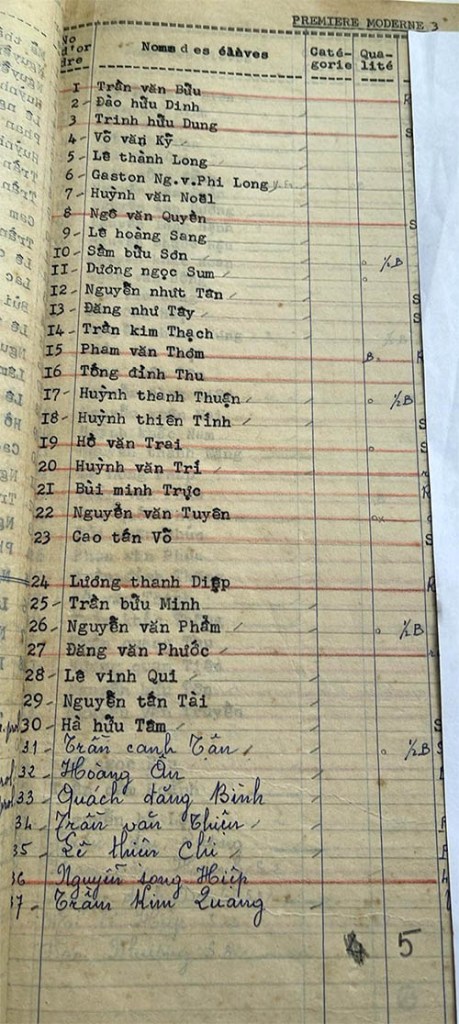 PREMIERE MODERNE 3
No d'or dre Noms des élèves Caté- gorie Qua- lité
1 Trần văn Bửu
2 - Đào hữu Dinh
3 Trinh hữu Dung
4 - Võ văn Kỹ
5 - Lê thành Long
6 - Gaston Ng.v.Phi Long
7 - Huỳnh văn Noël
8 Ngô văn Quyền
9 - Lê hoàng Sang
10 - Sầm bửu Sơn ½B
11 - Dương ngọc Sum
12 - Nguyễn nhựt Tân
13 - Đăng như Tây
14 - Trần kim Thạch
15 Pham văn Thơm B.
16 Tống đỉnh Thu
17 - Huỳnh thanh Thuận ½B
18 - Huỳnh thiên Tính
19 Hồ văn Trai
20 Huỳnh văn Trí
21 Bùi minh Trực
22 Nguyễn văn Tuyên
23 Cao tấn Võ
24 Lương thanh Diệp
25 - Trần bửu Minh
26 - Nguyễn văn Phẩm ½B
27 Đăng văn Phước
28 - Lê vinh Qui
29 - Nguyễn tấn Tài
30 - Hà hữu Tâm
31 - Trần canh Tân ½B
32 - Hoàng Ân
33 - Quách đăng Bình
34 - Trần văn Thiên
35 - Lê thiên Chí
36 Nguyễn song Hiệp
37 - Trầm Kim Quang
5